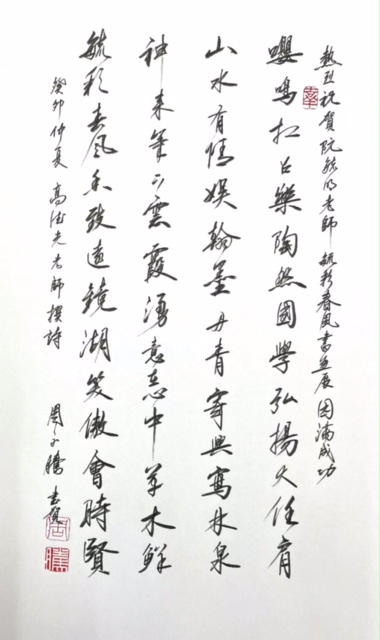 熱烈祝賀阮欽明老師毓彩春風書畫展圓滿成功
嚶鳴扛呂樂陶然國學弘揚大任肩
山水有情娛翰墨丹青寄興寫林泉
神來筆下雲霞湧意至忘中草木鮮
毓彩春風香致遠鏡湖笑傲會時賢
癸卯仲夏高德光老師撰詩
周小騰書賀